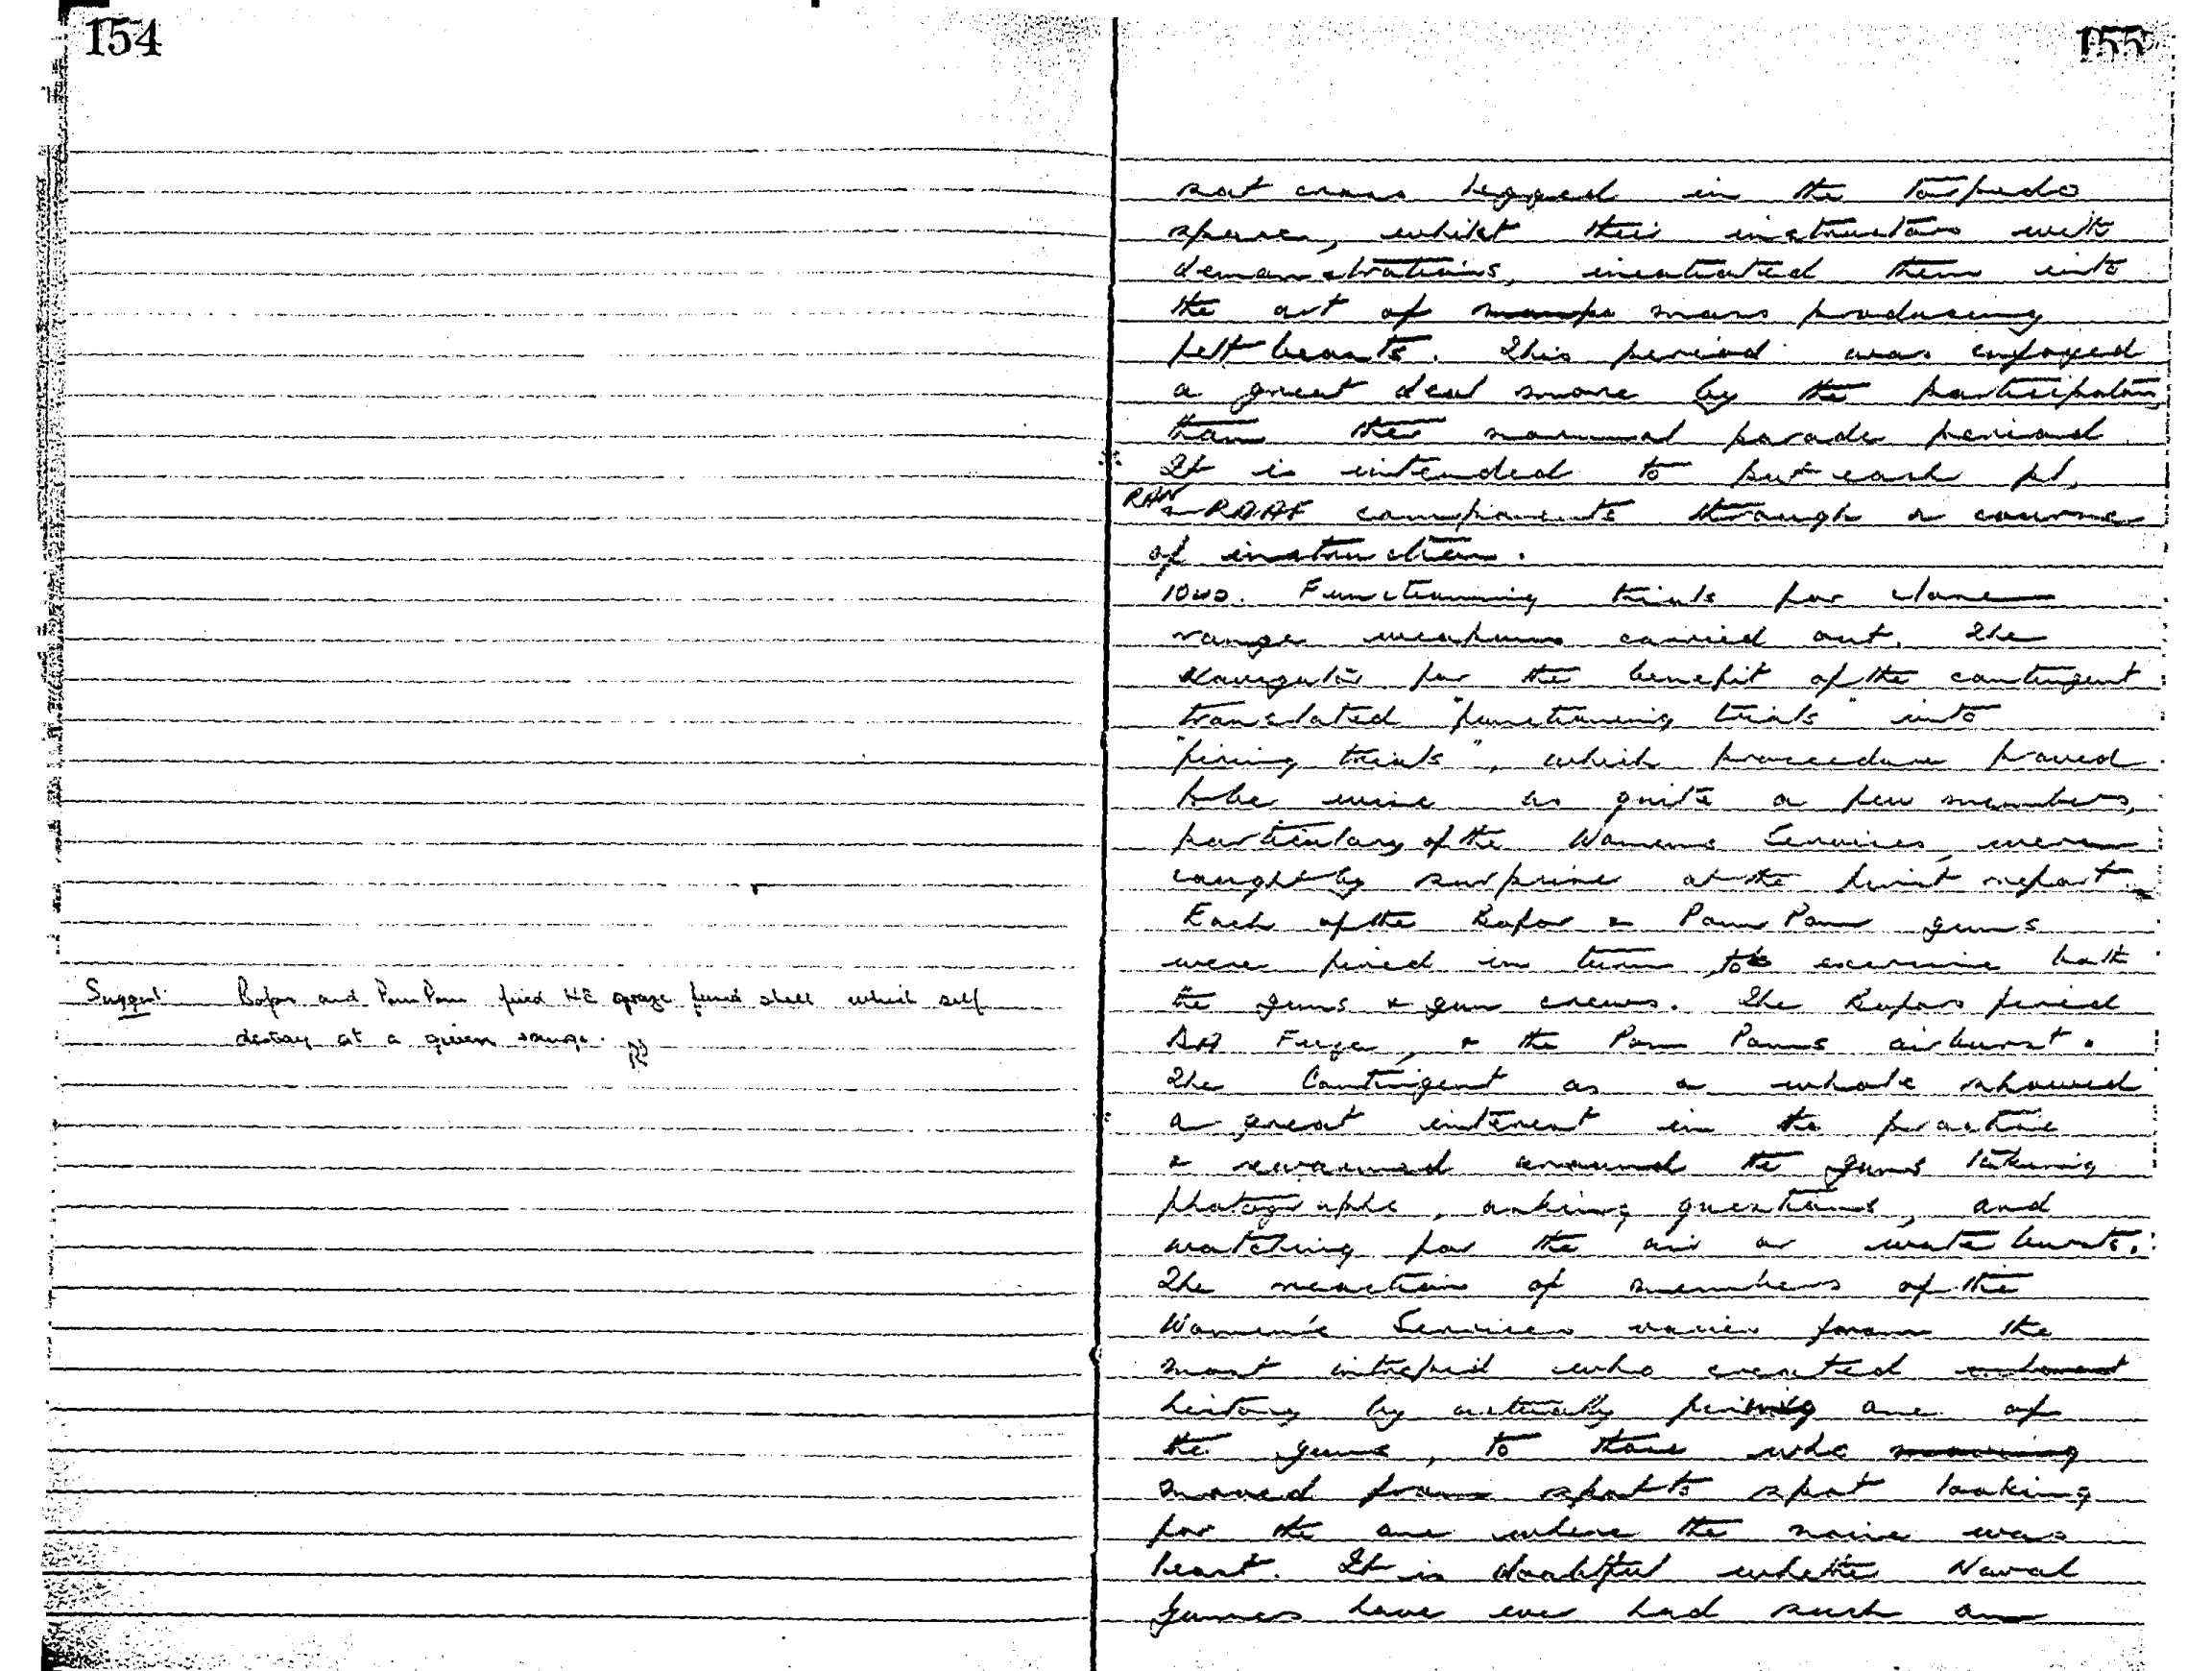 154
Suggest Bofor and Pom Pom fired HE graze fused shell which self
destroy at a given range.
155
sat cross legged in the torpedo
space, whilst their instructors with
demonstrations, them into
the art of mass producing
felt beasts. This period was enjoyed
a great deal more by the participators
than the normal parade period.
It is intended to put each pl,
RAN & RAAF components through a course
of instruction.
1000. Functioning trials for close
range weapons carried out. The
Navigator for the benefit of the contingent
translated "functioning trials" into
"firing trials", which proceedure proved
to be wise as quite a few members,
particulary of the Womens Services, were
caught by surprise at the first report.
Each of the Bofor & Pom Pom guns
were fired in turn to exercise both
the guns & gun crews. The Bofors fired
DA Fuze, & the Pom Poms airburst.
The Contingent as a whole showed
a great interest in the practice
& swarmed around the guns taking
photographs, asking questions, and
watching for the air or water bursts.
The reaction of members of the
Women's Services varies from the
most intrepid who created
history by actually firing one of
the guns, to those who moving
moved from spot to spot looking
for the one where the noise was
least. It is doubtful whether Naval
gunners have ever had such an